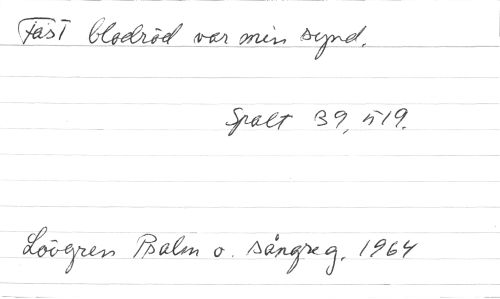 Fäst blodröd var min synd.
Spalt 39, 519.
Lövgren Psalm o. sångreg. 1964